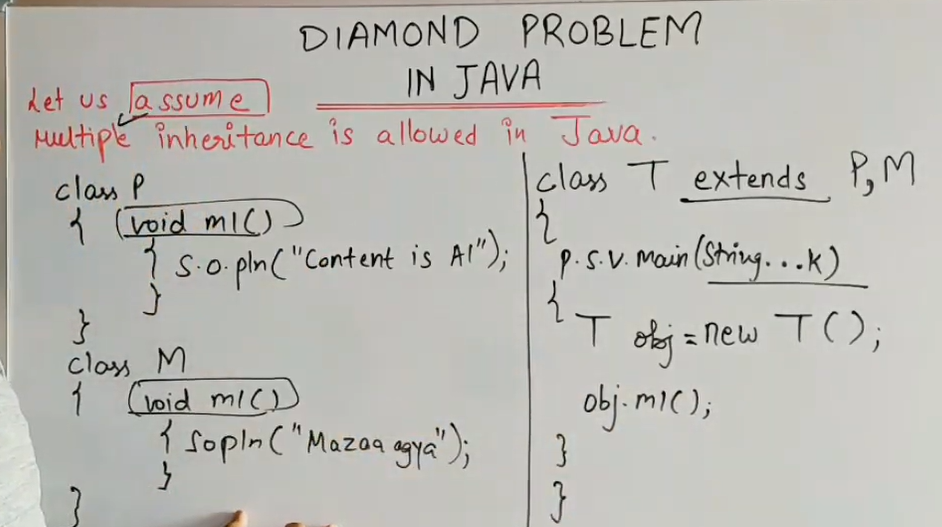 DIAMOND PROBLEM
IN JAVA
Let us assume
Multiple inheritance is allowed in Java.
class P
{ void m1()
{ S.O.pln("Content is A1");
}
}
class M
{ void m1()
{ Sopln("Mazaa agya");
}
}
class T extends P, M
{
p.s.v. main(String...k)
{
T obj = new T();
obj.m1();
}
}